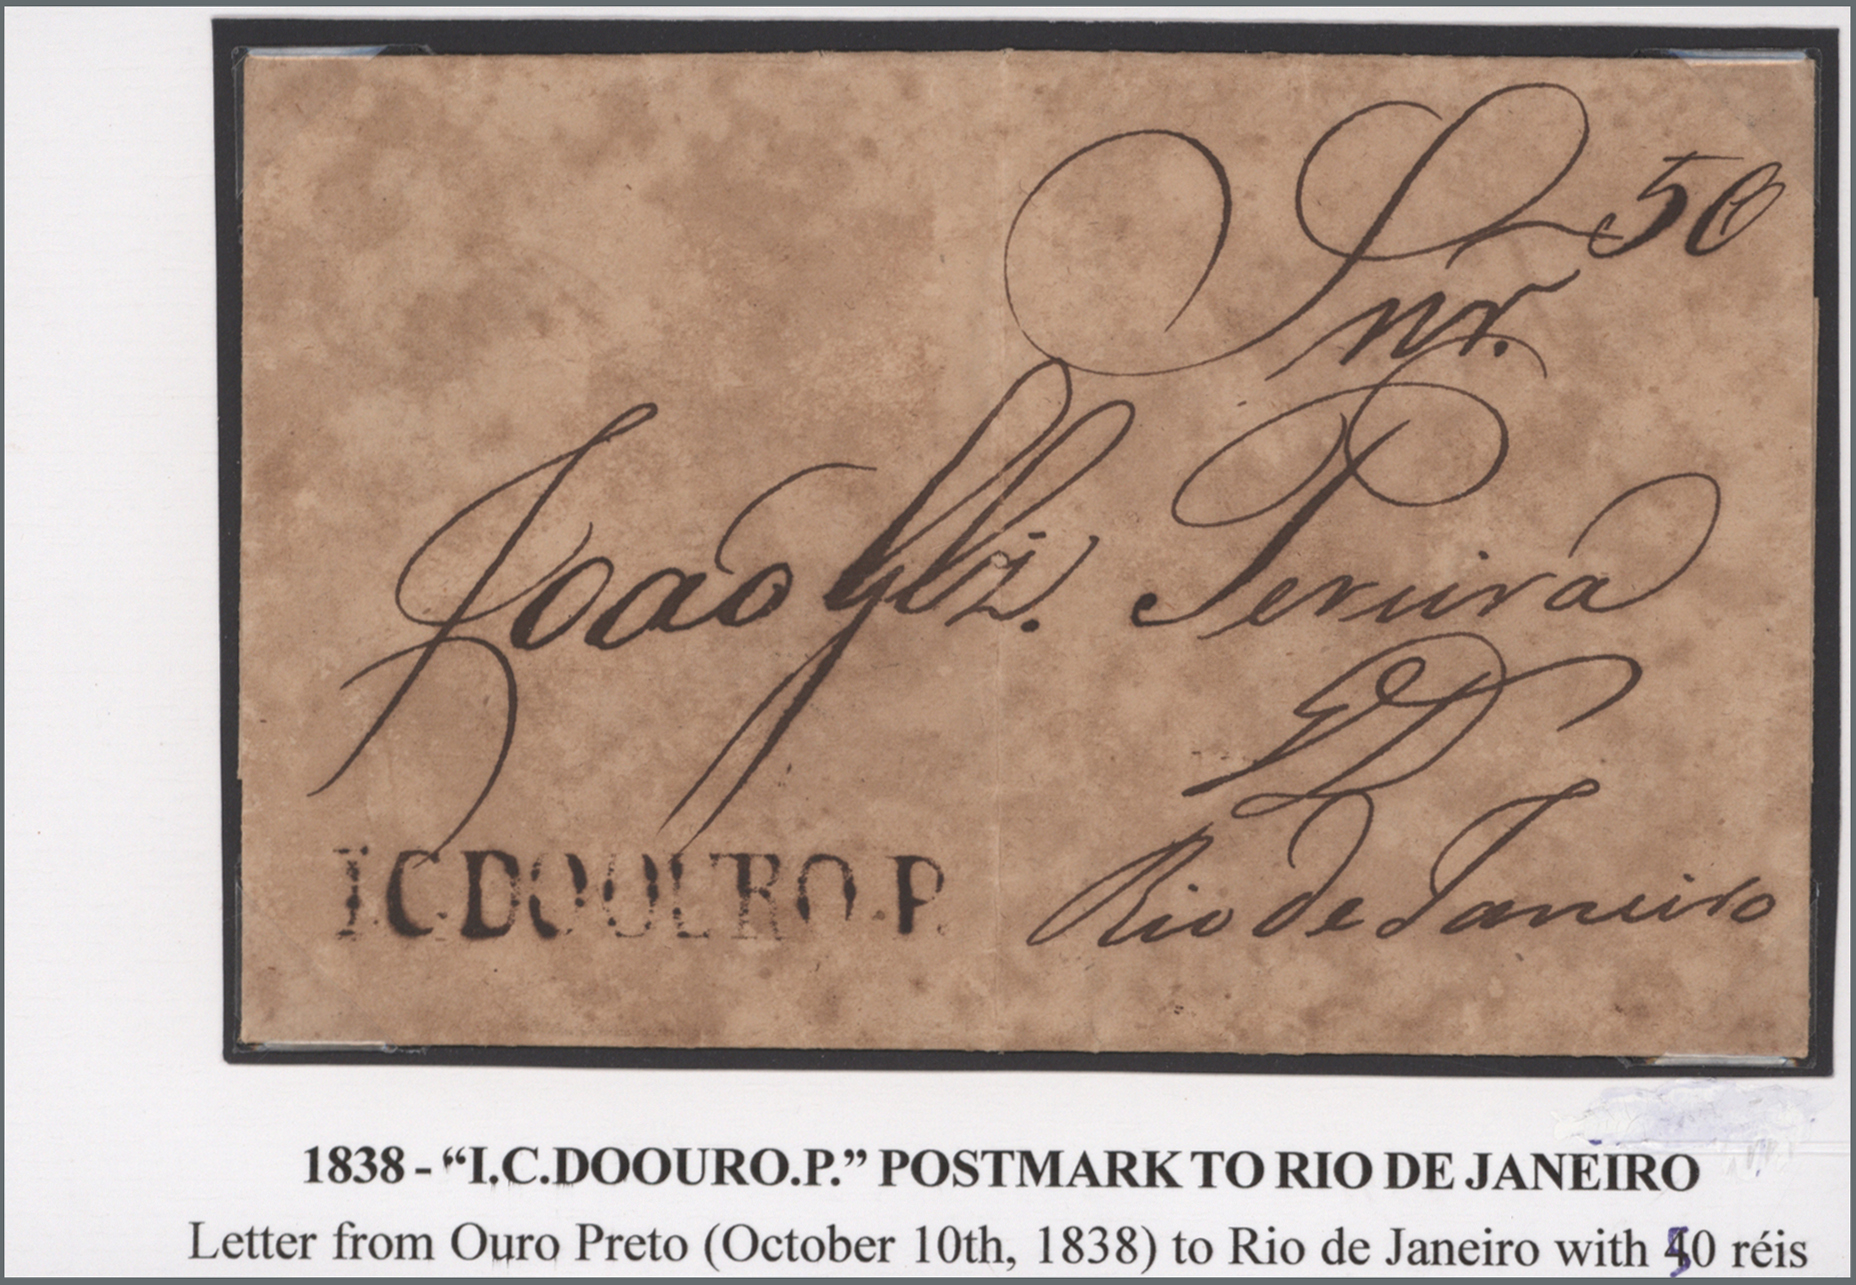 50
Snr.
João Glz. Pereira
Rio de Janeiro
I.C.DOOURO.P.
1838 - “I.C.DOOURO.P.” POSTMARK TO RIO DE JANEIRO
Letter from Ouro Preto (October 10th, 1838) to Rio de Janeiro with 50 réis